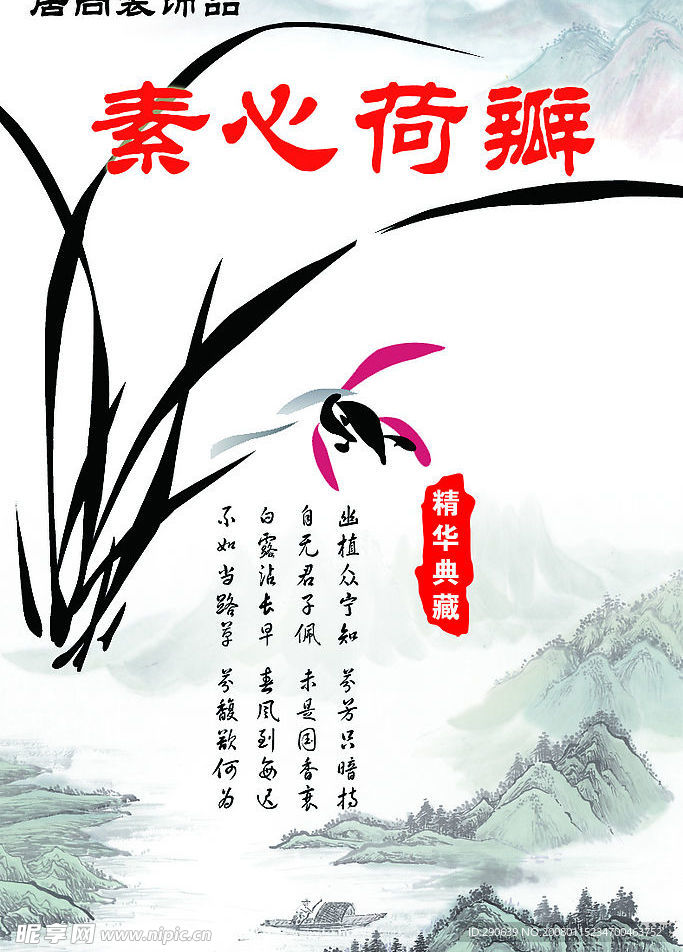 装饰品
素心荷瓣
精华典藏
幽植众宁知 芬芳只暗持
自无君子佩 未是国香衰
白露沾长早 春风到每迟
不如当路草 芬馥欲何为
昵享网 www.nipic.cn
ID:290639 NO:20080115234700463752